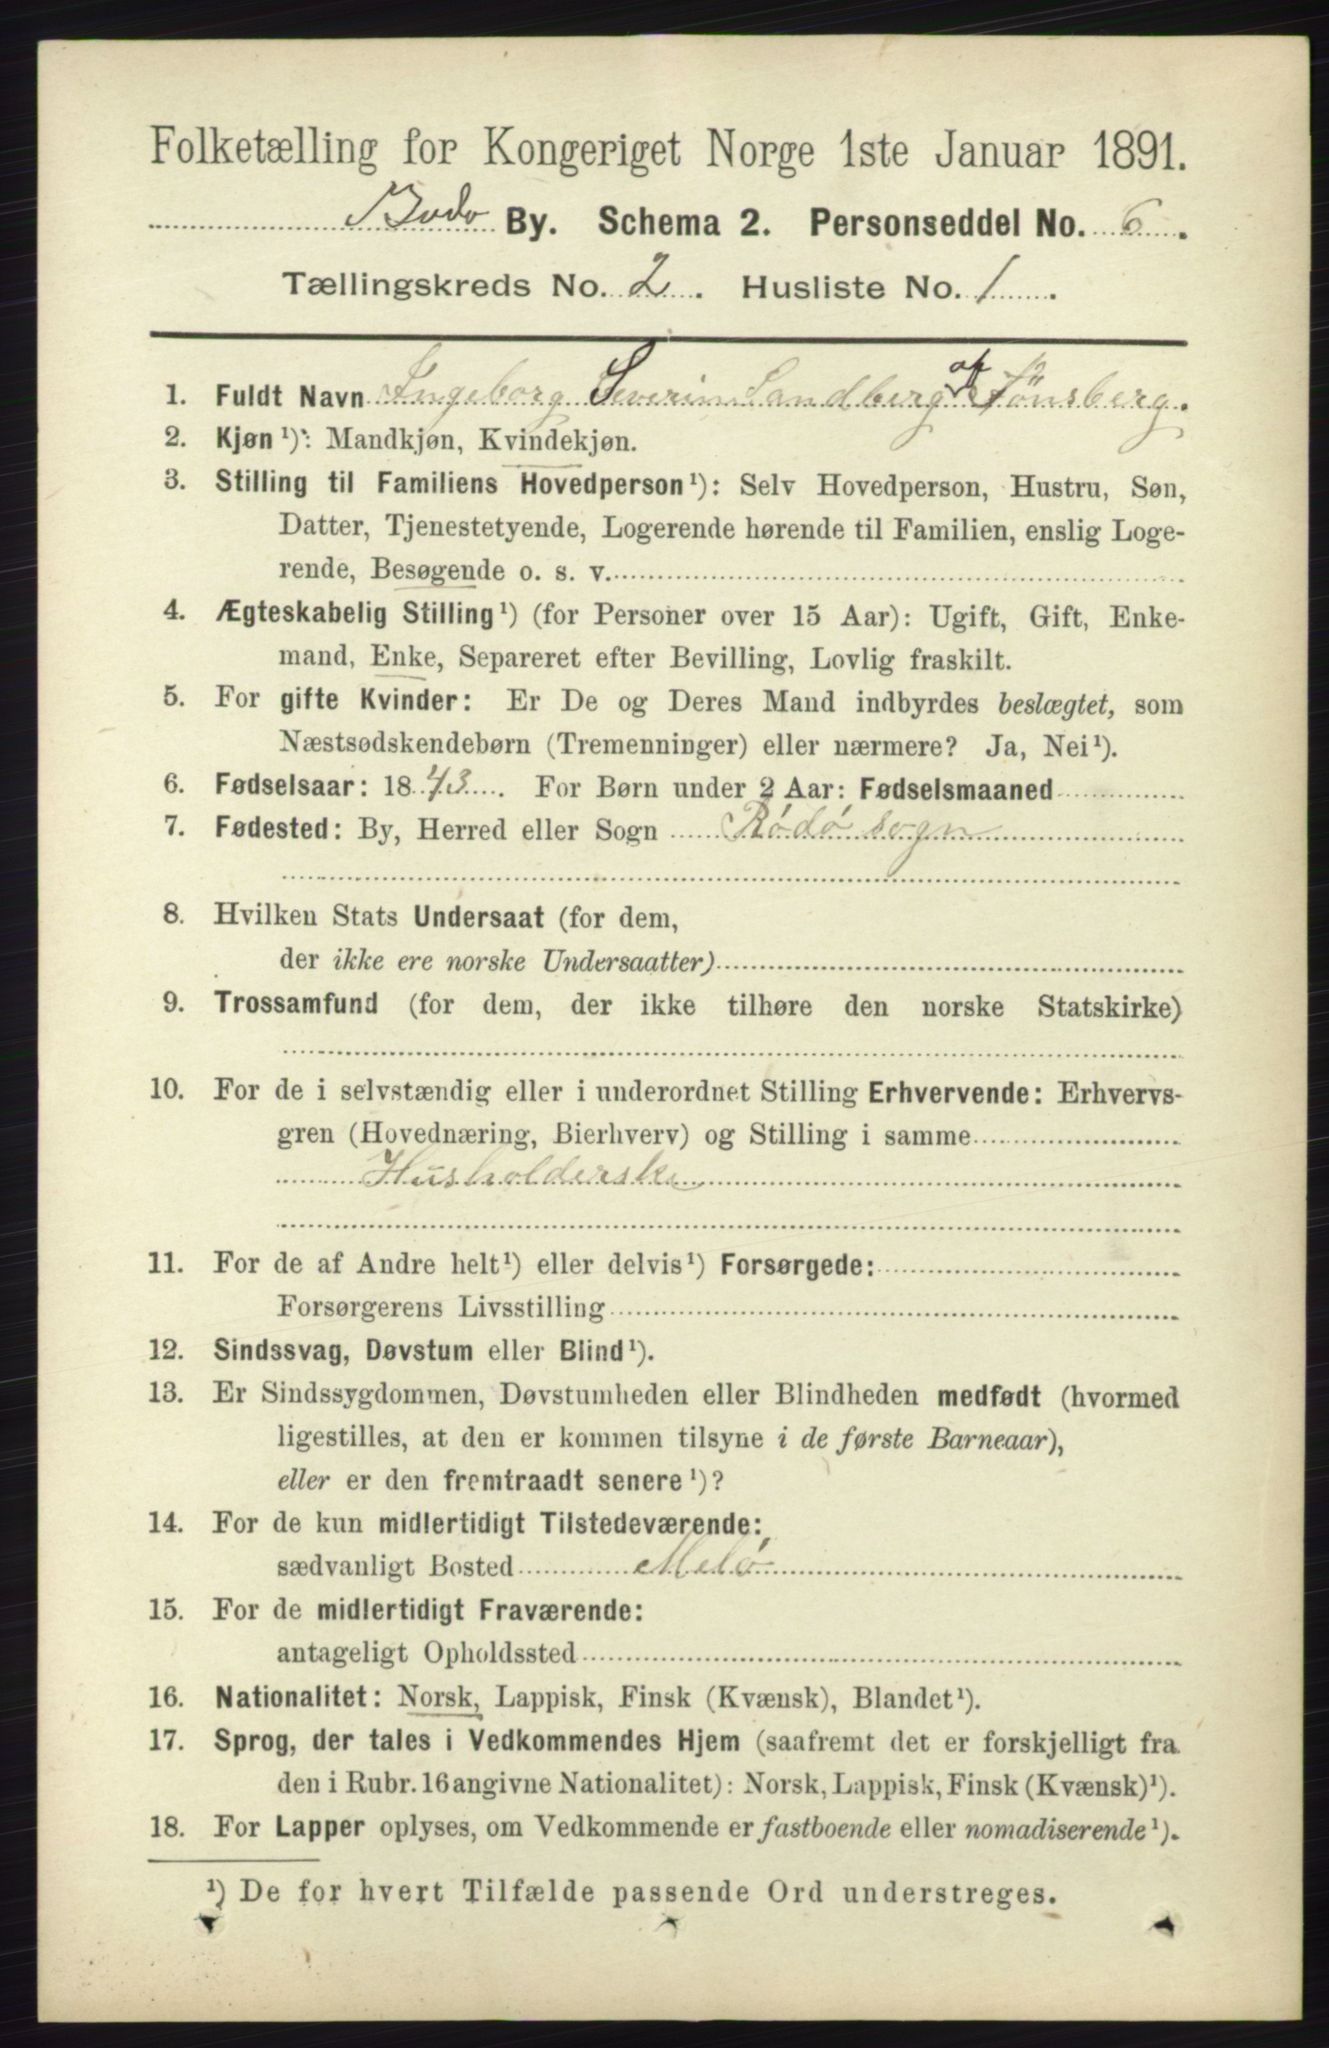 Folketælling for Kongeriget Norge 1ste Januar 1891.
Bodø By. Schema 2. Personseddel No. 6.
Tællingskreds No. 2. Husliste No. 1.
1. Fuldt Navn Ingeborg Severin Sandberg Tønsberg.
2. Kjøn¹): Mandkjøn, Kvindekjøn.
3. Stilling til Familiens Hovedperson¹): Selv Hovedperson, Hustru, Søn,
Datter, Tjenestetyende, Logerende hørende til Familien, enslig Loge-
rende, Besøgende o. s. v.
4. Ægteskabelig Stilling¹) (for Personer over 15 Aar): Ugift, Gift, Enke-
mand, Enke, Separeret efter Bevilling, Lovlig fraskilt.
5. For gifte Kvinder: Er De og Deres Mand indbyrdes beslægtet, som
Næstsødskendebørn (Tremenninger) eller nærmere? Ja, Nei¹).
6. Fødselsaar: 1843. For Børn under 2 Aar: Fødselsmaaned
7. Fødested: By, Herred eller Sogn Rødø sogn
8. Hvilken Stats Undersaat (for dem,
der ikke ere norske Undersaatter)
9. Trossamfund (for dem, der ikke tilhøre den norske Statskirke)
10. For de i selvstændig eller i underordnet Stilling Erhvervende: Erhvervs-
gren (Hovednæring, Bierhverv) og Stilling i samme
Husholderske
11. For de af Andre helt¹) eller delvis¹) Forsørgede:
Forsørgerens Livsstilling
12. Sindssvag, Døvstum eller Blind¹).
13. Er Sindssygdommen, Døvstumheden eller Blindheden medfødt (hvormed
ligestilles, at den er kommen tilsyne i de første Barneaar),
eller er den fremtraadt senere¹)?
14. For de kun midlertidigt Tilstedeværende:
sædvanligt Bosted Melø
15. For de midlertidigt Fraværende:
antageligt Opholdssted
16. Nationalitet: Norsk, Lappisk, Finsk (Kvænsk), Blandet¹).
17. Sprog, der tales i Vedkommendes Hjem (saafremt det er forskjelligt fra
den i Rubr. 16 angivne Nationalitet): Norsk, Lappisk, Finsk (Kvænsk)¹).
18. For Lapper oplyses, om Vedkommende er fastboende eller nomadiserende¹).
¹) De for hvert Tilfælde passende Ord understreges.